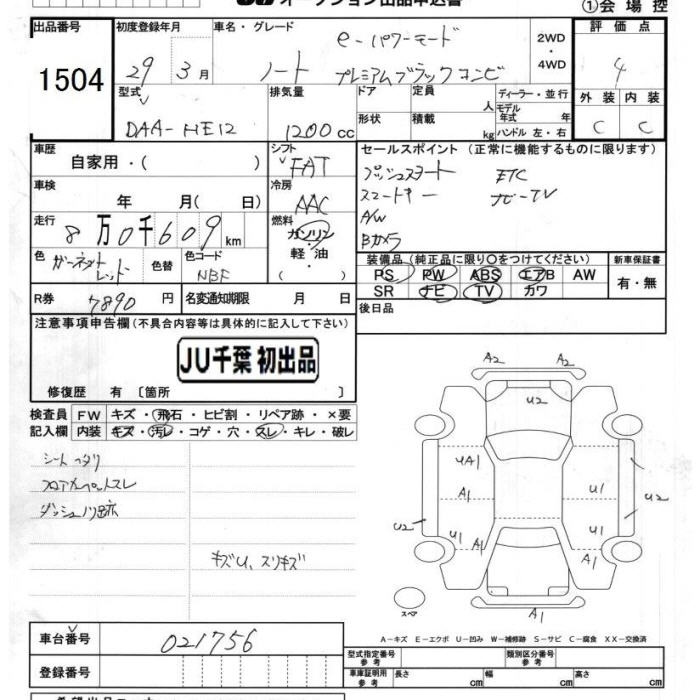 オークション出品申込書
①会場控
出品番号 初度登録年月 車名・グレード 評価点
1504 29 3月 ノート e-パワーモード プレミアムブラックコンビ 2WD・4WD 4
型式 排気量 ドア 定員 人 ディーラー・並行 外装 内装
DAA-HE12 1200cc 形状 積載 kg モデル年式 年 ハンドル 左・右 C C
車歴 自家用・( ) シフト FAT
セールスポイント (正常に機能するものに限ります)
プッシュスタート ETC
スマートキー ナビ-TV
A/W
Bカメラ
車検 年 月( 日) 冷房 AAC
走行 8万0千609km 燃料 ガソリン・軽油・( )
色 ガーネットレッド 色替 色コード NBF
装備品 (純正品に限り○をつけてください) 新車保証書
PS PW ABS エアB AW 有・無
SR ナビ TV カワ
R券 7890円 名変通知期限 月 日
後日品
注意事項申告欄 (不具合内容等は具体的に記入して下さい)
JU千葉 初出品
修復歴 有 〔箇所 〕
検査員 FW キズ・飛石・ヒビ割・リペア跡・×要
記入欄 内装 キズ・汚レ・コゲ・穴・スレ・キレ・破レ
シートヘタリ
フロアカーペットスレ
ダッシュノリ跡
キズU、スリキズ
A2 A2
U2
UA1
A1 U1 U2
U2 U1 A1 A1
A1
スペア
A-キズ E-エクボ U-凹み W-補修跡 S-サビ C-腐食 XX-交換済
車台番号 021756
登録番号
型式指定番号 参考 類別区分番号 参考
車庫証明用 参考 長さ cm 幅 cm 高さ cm